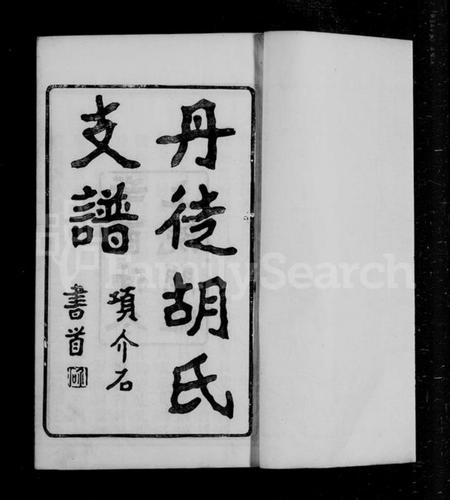 丹徒胡氏
支譜
項介石
書首
FamilySearch